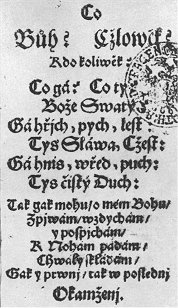 Co
Bůh? Cžlowěk?
Kdo koliwěk?
Co gá? Co ty
Bože Swatý?
Gá hřjch, pych, lest:
Tys Sláwa, Cžest:
Gá hnis, wřed, puch:
Tys čistý Duch:
Tak gak mohu/ o mém Bohu/
Zpjwám/ wzdychám/
y pospjchám/
K Noham padám/
Chwály skládám/
Gak y prwnj/ tak w poslednj
Okamženj.